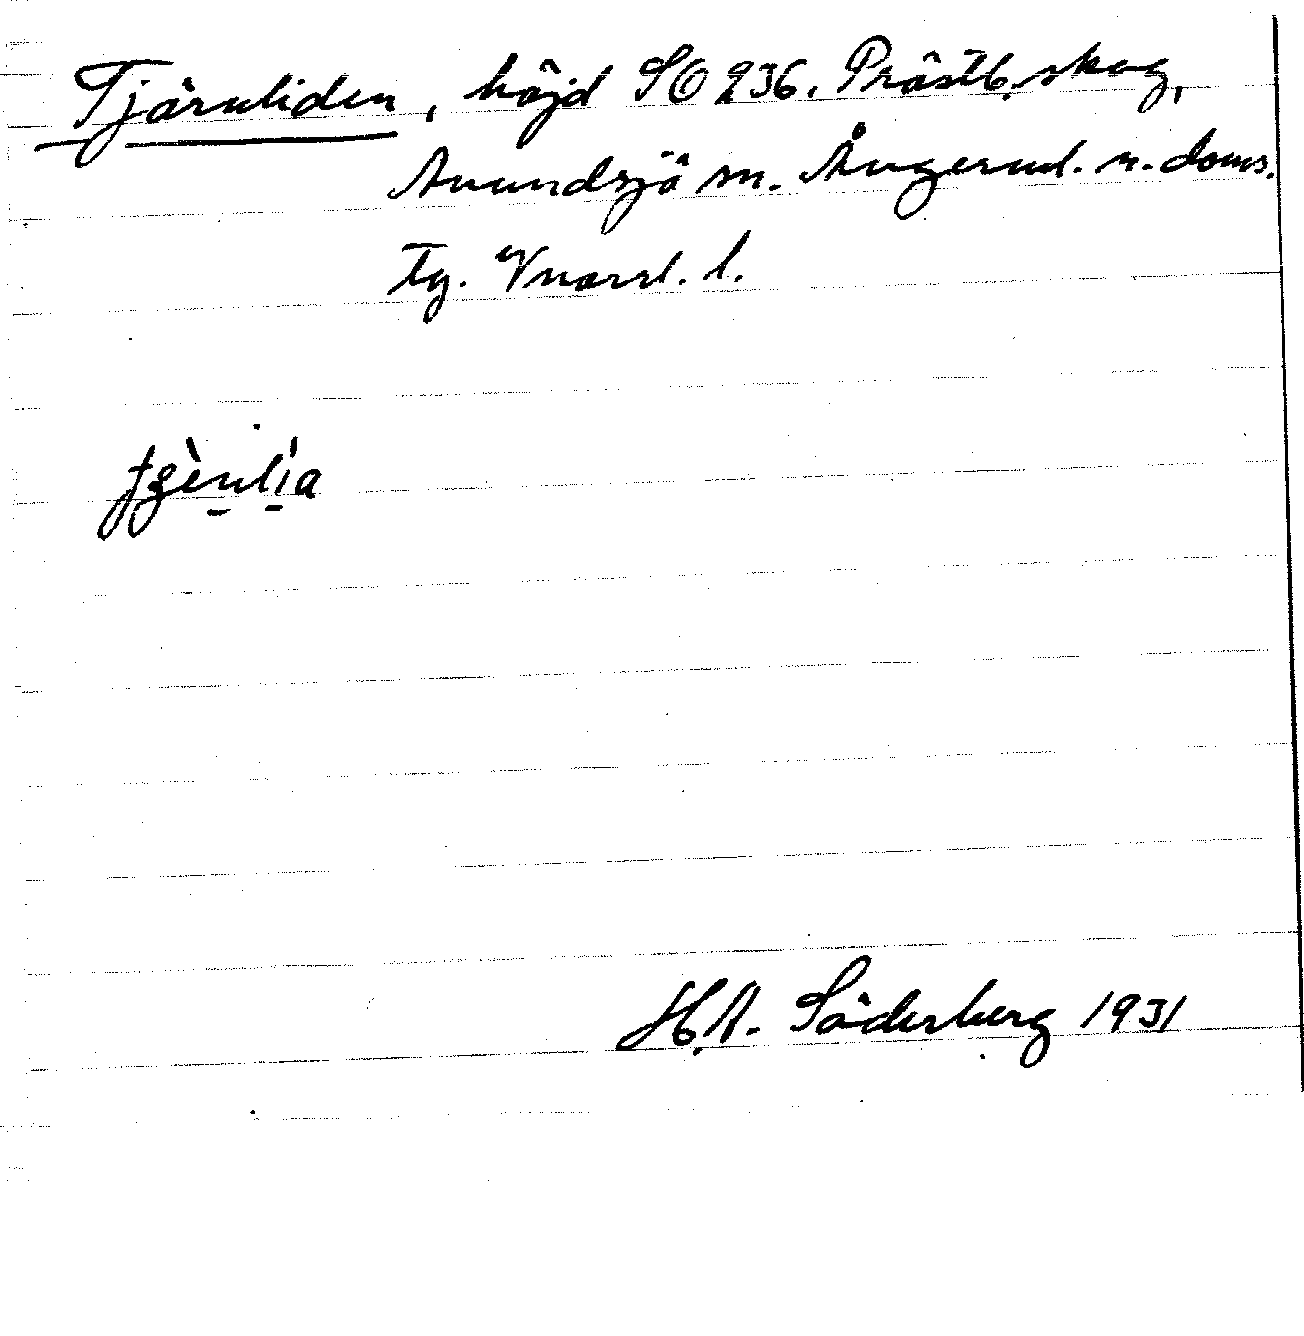 Tjärnliden, höjd SO 236. Prästb. skog,
Anundsjö sn. Ångerml. n. doms.
Tg. Vnorrl. l.
H.A. Söderberg 1931